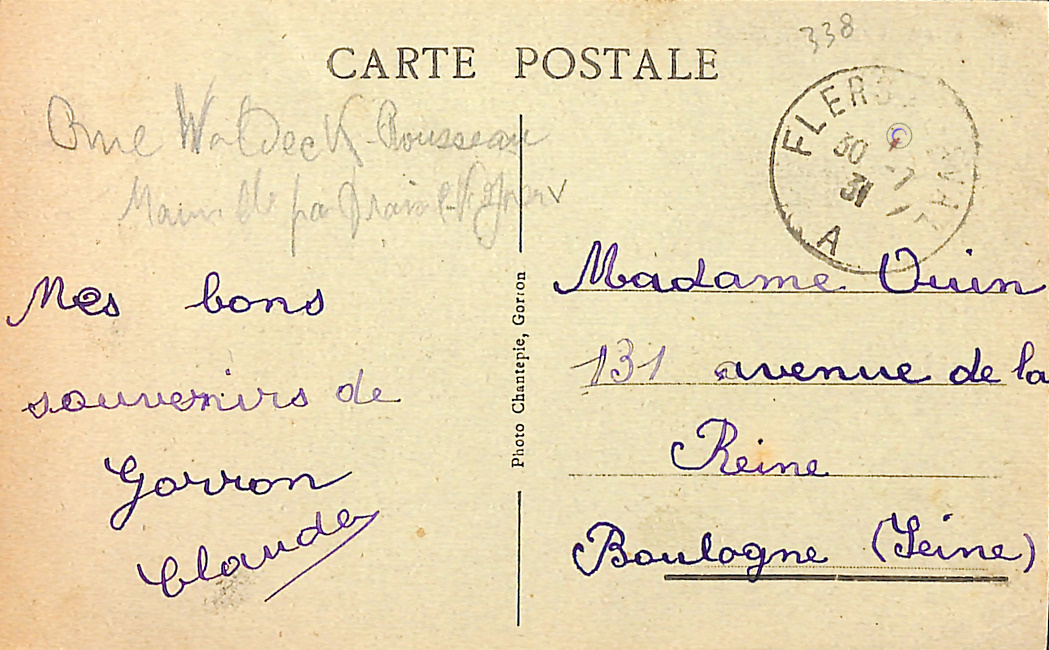 338
CARTE POSTALE
FLERS
30
-7
31
A
Rue Waldeck-Rousseau
Mes bons
souvenirs de
Gorron
Claude
Photo Chantepie, Gorron
Madame Ouin
131 avenue de la
Reine
Boulogne (Seine)